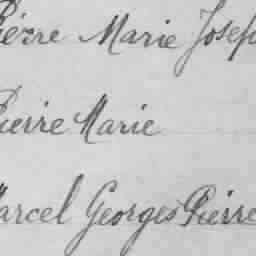 Pierre Marie Josep
Pierre Marie
Marcel Georges Pierre